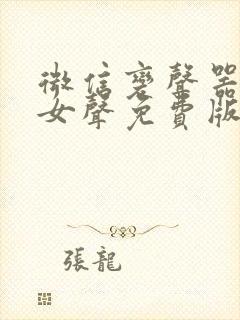 微信变聲器
女聲免費版
張龍